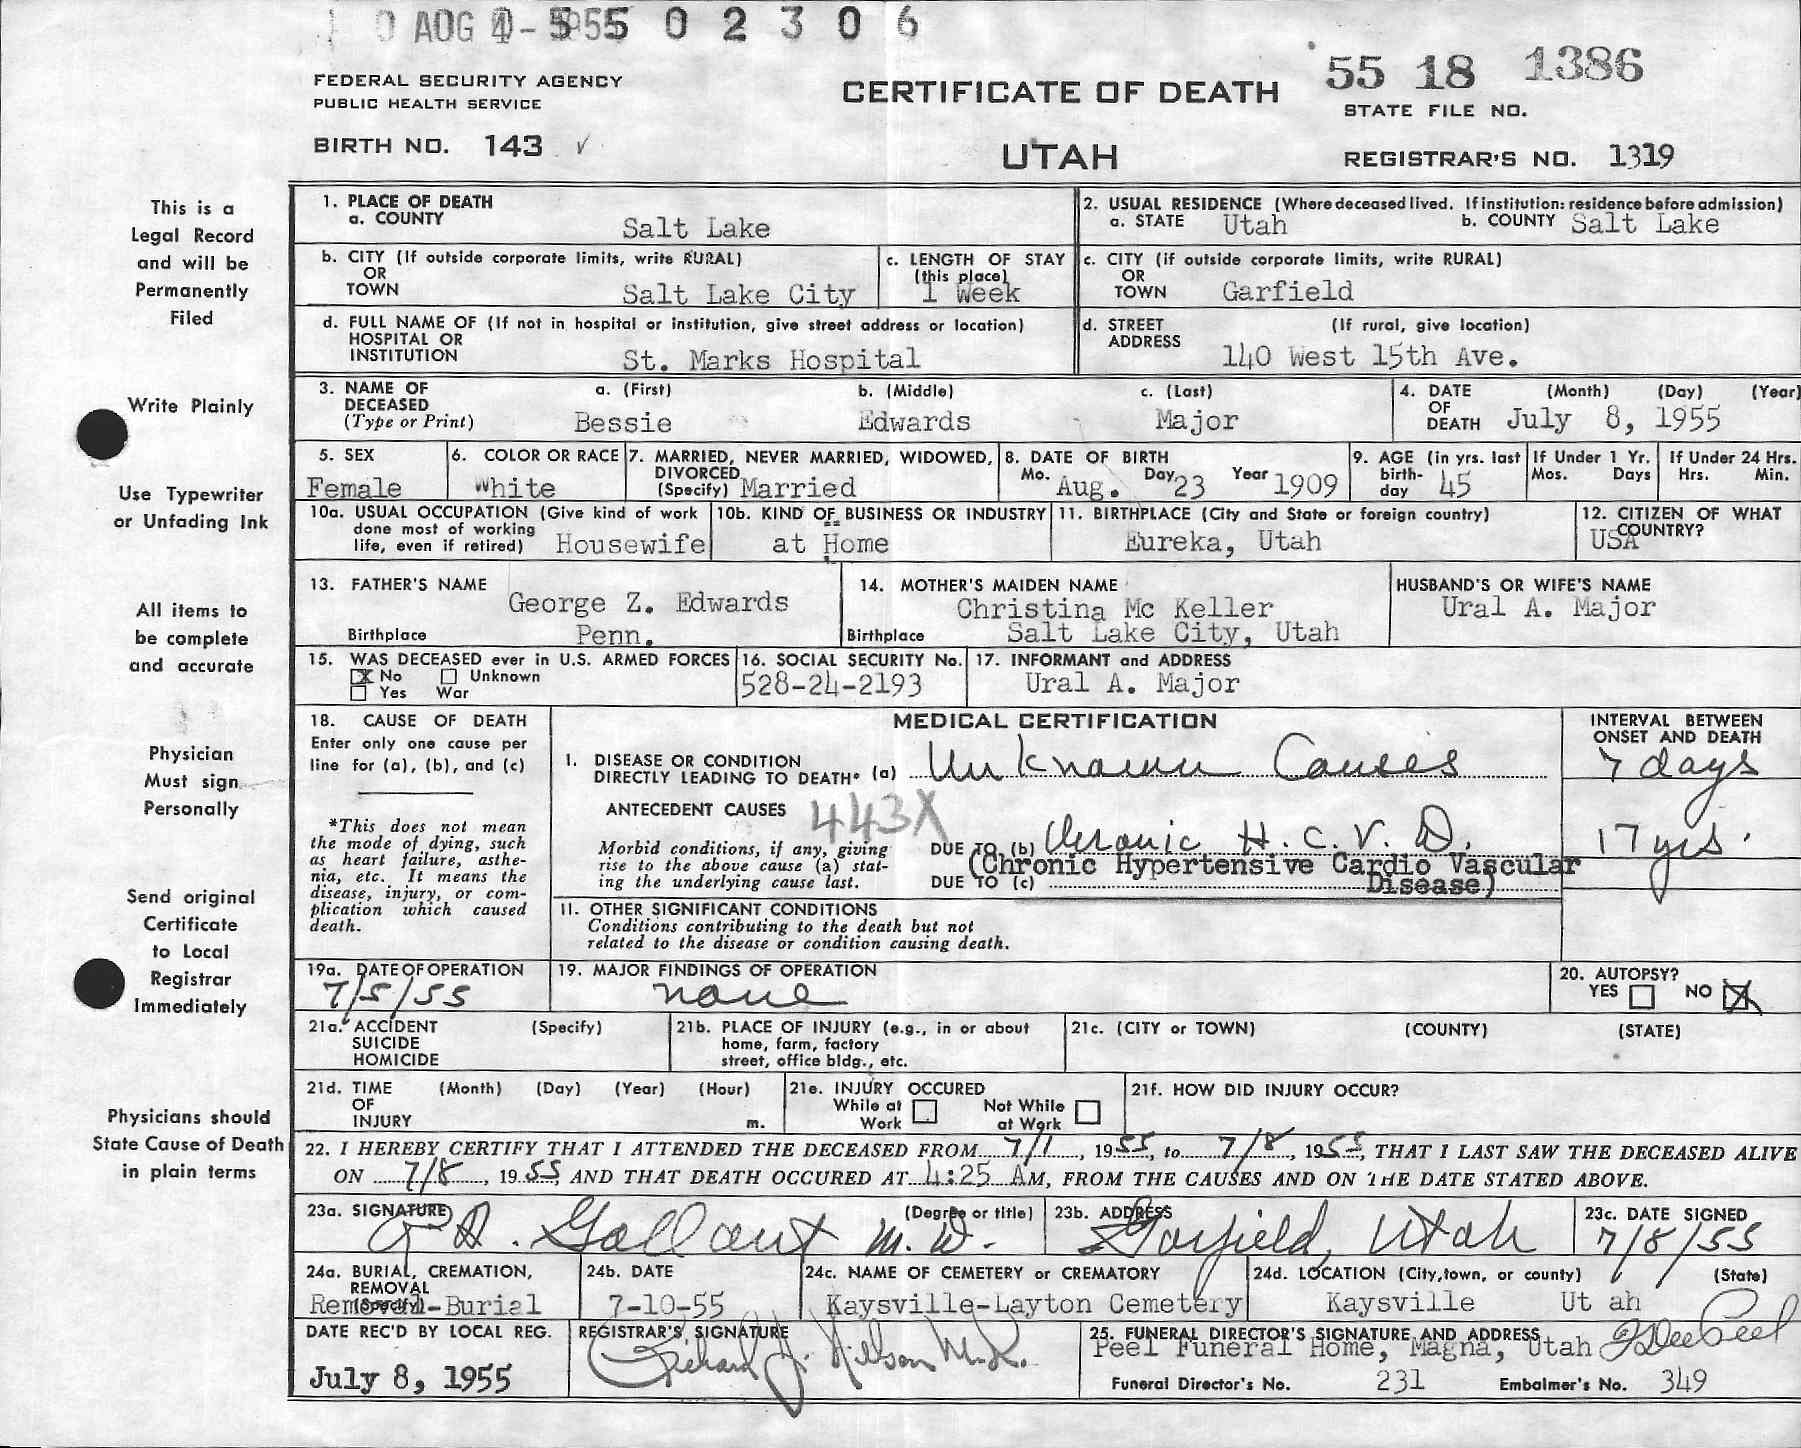 AUG 4- 1955 0 2 3 0 6
FEDERAL SECURITY AGENCY
PUBLIC HEALTH SERVICE
BIRTH NO. 143 ✓
CERTIFICATE OF DEATH
UTAH
55 18 1386
STATE FILE NO.
REGISTRAR'S NO. 1319
This is a
Legal Record
and will be
Permanently
Filed
Write Plainly
Use Typewriter
or Unfading Ink
All items to
be complete
and accurate
Physician
Must sign
Personally
Send original
Certificate
to Local
Registrar
Immediately
Physicians should
State Cause of Death
in plain terms
1. PLACE OF DEATH
a. COUNTY Salt Lake
2. USUAL RESIDENCE (Where deceased lived. If institution: residence before admission)
a. STATE Utah b. COUNTY Salt Lake
b. CITY (If outside corporate limits, write RURAL)
OR
TOWN Salt Lake City
c. LENGTH OF STAY
(this place)
1 Week
c. CITY (if outside corporate limits, write RURAL)
OR
TOWN Garfield
d. FULL NAME OF (If not in hospital or institution, give street address or location)
HOSPITAL OR
INSTITUTION St. Marks Hospital
d. STREET (If rural, give location)
ADDRESS 140 West 15th Ave.
3. NAME OF DECEASED (Type or Print)
a. (First) b. (Middle) c. (Last)
Bessie Edwards Major
4. DATE (Month) (Day) (Year)
OF
DEATH July 8, 1955
5. SEX
Female
6. COLOR OR RACE
White
7. MARRIED, NEVER MARRIED, WIDOWED,
DIVORCED
(Specify) Married
8. DATE OF BIRTH
Mo. Aug. Day 23 Year 1909
9. AGE (in yrs. last
birth-
day 45
If Under 1 Yr.
Mos. Days
If Under 24 Hrs.
Hrs. Min.
10a. USUAL OCCUPATION (Give kind of work
done most of working
life, even if retired) Housewife
10b. KIND OF BUSINESS OR INDUSTRY
at Home
11. BIRTHPLACE (City and State or foreign country)
Eureka, Utah
12. CITIZEN OF WHAT
COUNTRY?
USA
13. FATHER'S NAME
George Z. Edwards
Birthplace Penn.
14. MOTHER'S MAIDEN NAME
Christina Mc Keller
Birthplace Salt Lake City, Utah
HUSBAND'S OR WIFE'S NAME
Ural A. Major
15. WAS DECEASED ever in U.S. ARMED FORCES
X No Unknown
Yes War
16. SOCIAL SECURITY No.
528-24-2193
17. INFORMANT and ADDRESS
Ural A. Major
18. CAUSE OF DEATH
Enter only one cause per
line for (a), (b), and (c)
*This does not mean
the mode of dying, such
as heart failure, asthe-
nia, etc. It means the
disease, injury, or com-
plication which caused
death.
MEDICAL CERTIFICATION
INTERVAL BETWEEN
ONSET AND DEATH
I. DISEASE OR CONDITION
DIRECTLY LEADING TO DEATH* (a) Unknown Causes 7 days
ANTECEDENT CAUSES 443X
Morbid conditions, if any, giving
rise to the above cause (a) stat-
ing the underlying cause last.
DUE TO (b) Chronic H.C.V.D. 17 yrs.
(Chronic Hypertensive Cardio Vascular
DUE TO (c) Disease)
II. OTHER SIGNIFICANT CONDITIONS
Conditions contributing to the death but not
related to the disease or condition causing death.
19a. DATE OF OPERATION
7/5/55
19. MAJOR FINDINGS OF OPERATION
none
20. AUTOPSY?
YES NO X
21a. ACCIDENT (Specify)
SUICIDE
HOMICIDE
21b. PLACE OF INJURY (e.g., in or about
home, farm, factory
street, office bldg., etc.
21c. (CITY or TOWN) (COUNTY) (STATE)
21d. TIME (Month) (Day) (Year) (Hour)
OF
INJURY m.
21e. INJURY OCCURED
While at Work Not While at Work
21f. HOW DID INJURY OCCUR?
22. I HEREBY CERTIFY THAT I ATTENDED THE DECEASED FROM 7/1, 1955, to 7/8, 1955, THAT I LAST SAW THE DECEASED ALIVE
ON 7/8, 1955, AND THAT DEATH OCCURED AT 4:25 AM, FROM THE CAUSES AND ON THE DATE STATED ABOVE.
23a. SIGNATURE (Degree or title)
Gallant M.D.
23b. ADDRESS
Garfield, Utah
23c. DATE SIGNED
7/8/55
24a. BURIAL, CREMATION,
REMOVAL
(Specify)
Removal-Burial
24b. DATE
7-10-55
24c. NAME OF CEMETERY or CREMATORY
Kaysville-Layton Cemetery
24d. LOCATION (City, town, or county) (State)
Kaysville Ut ah
DATE REC'D BY LOCAL REG.
July 8, 1955
REGISTRAR'S SIGNATURE
Richard J. Nelson
25. FUNERAL DIRECTOR'S SIGNATURE AND ADDRESS
Peel Funeral Home, Magna, Utah Peel
Funeral Director's No. 231 Embalmer's No. 349